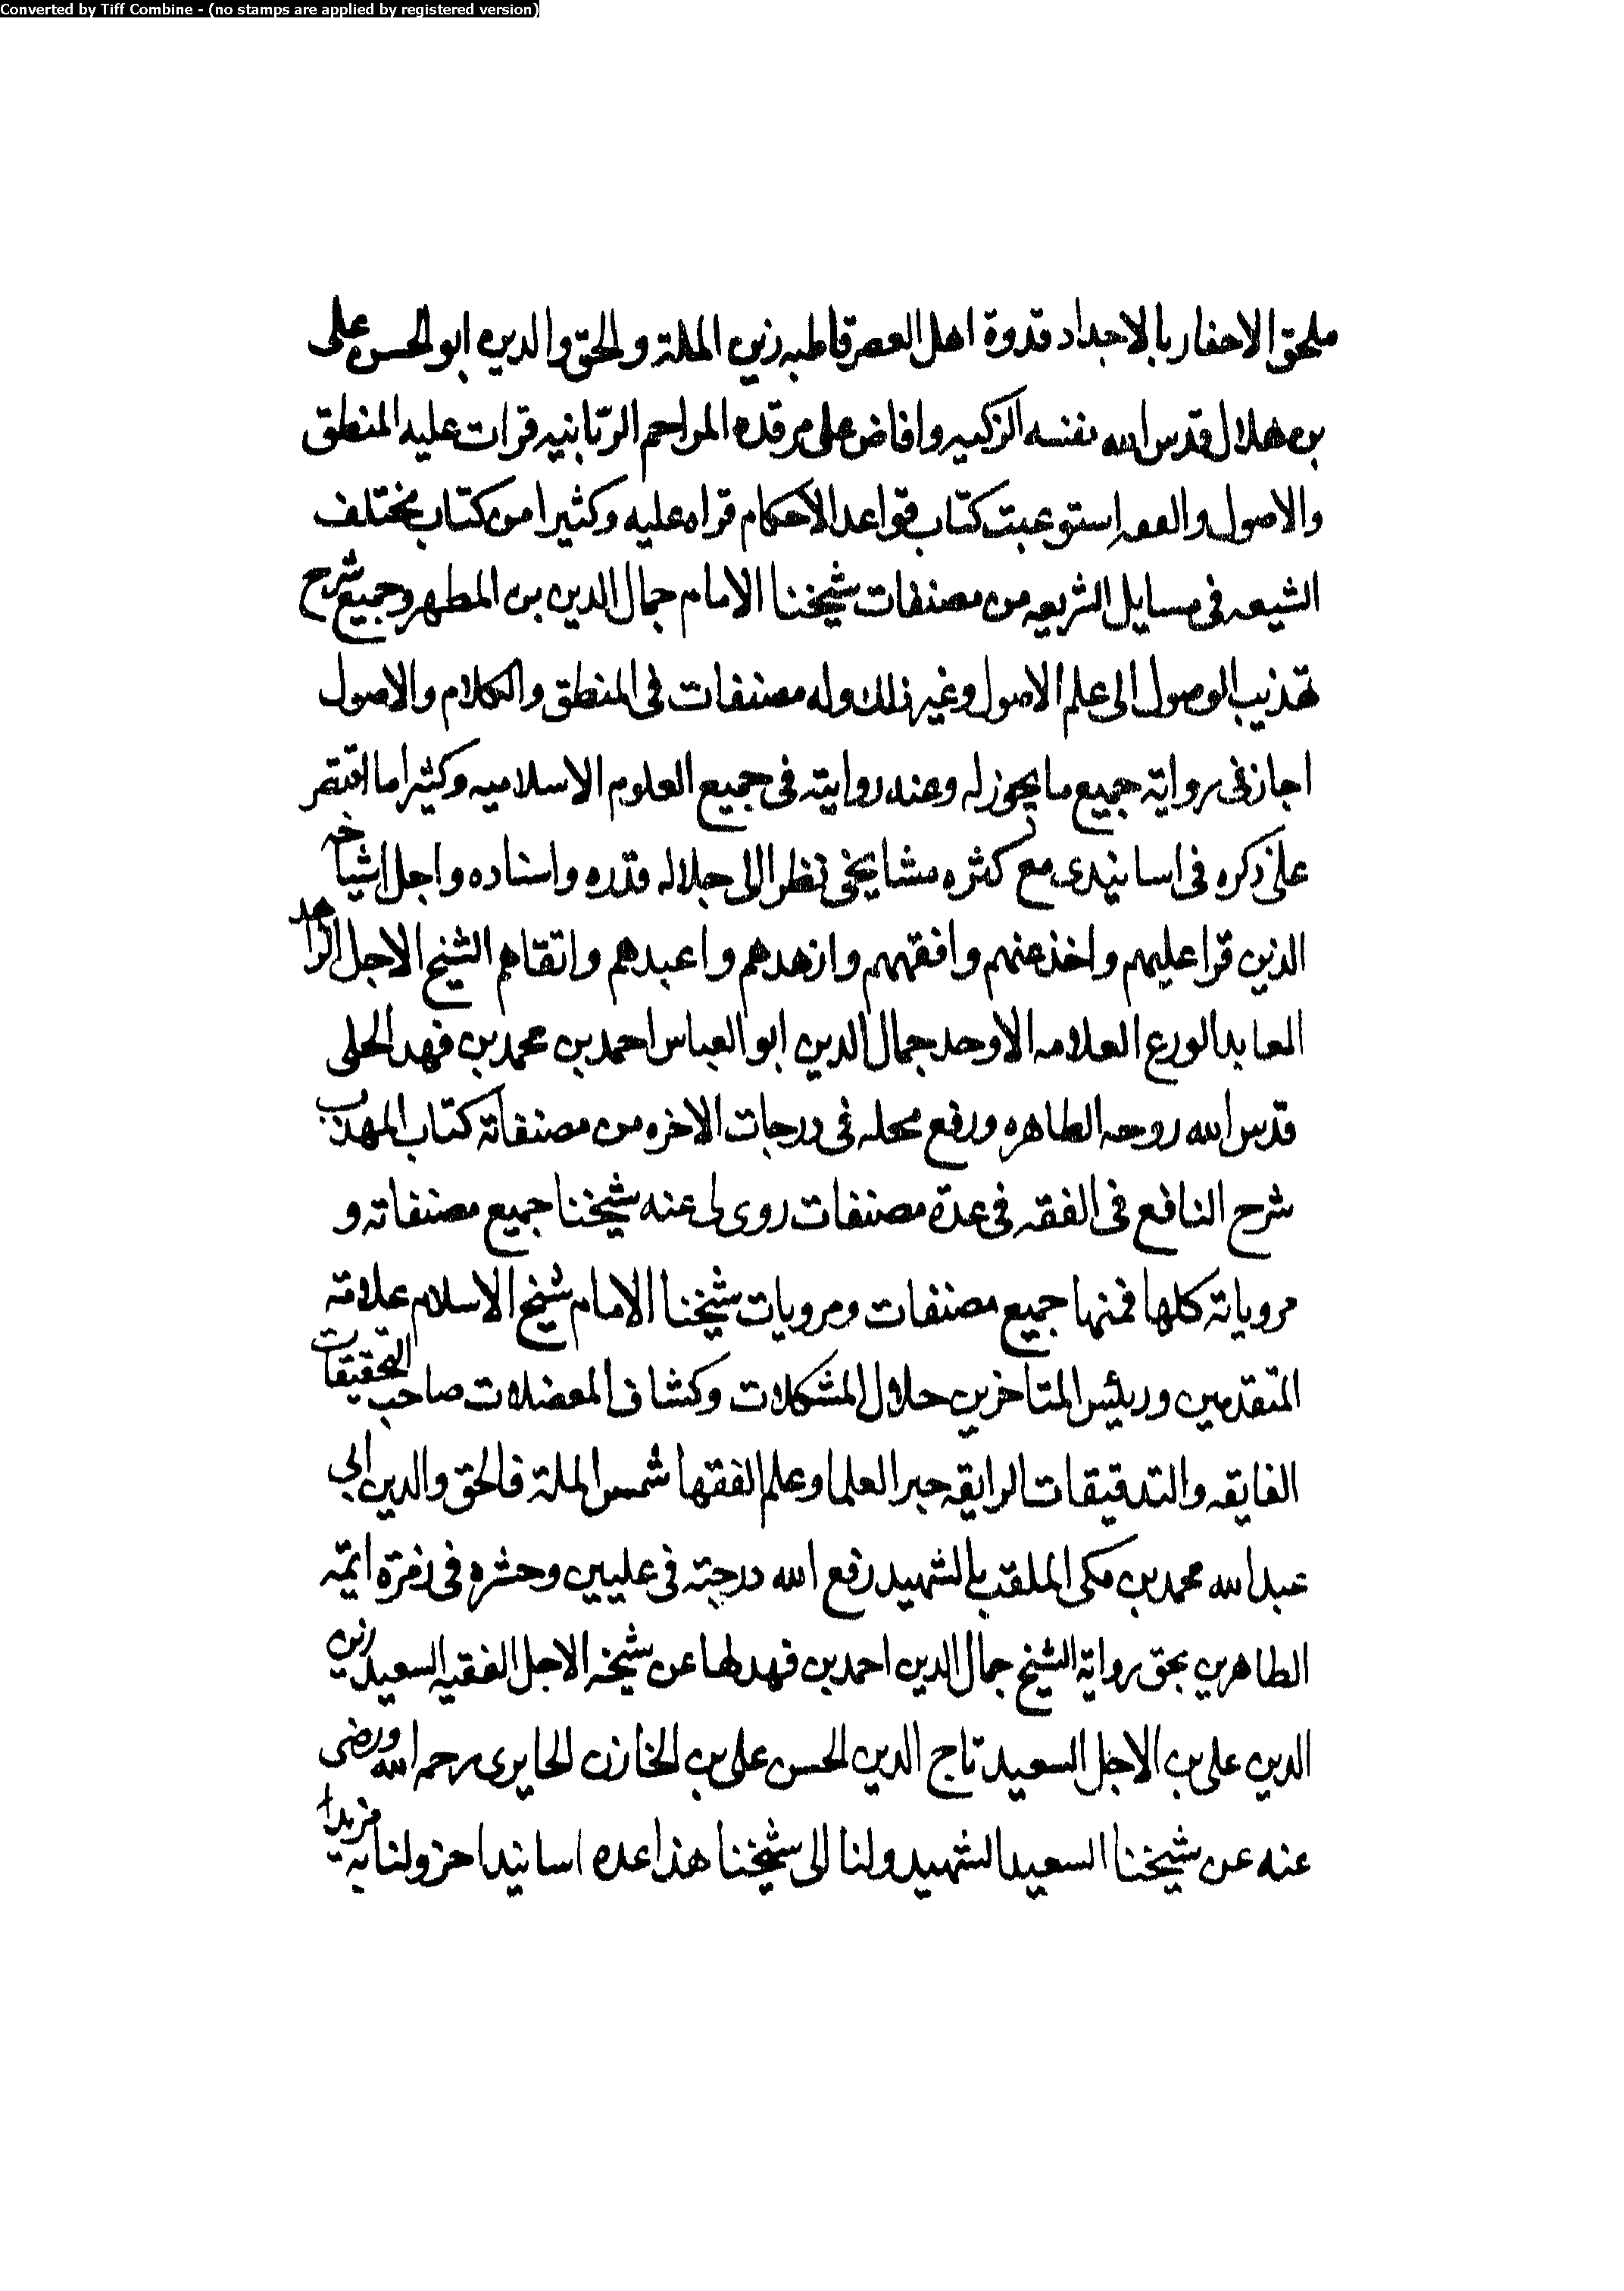 Converted by Tiff Combine - (no stamps are applied by registered version)
ملحق الاحفاد بالاجداد قدوة اهل العصر قاطبه زين الملة والحق والدين ابو الحسن على
بن هلال قدس الله نفسه الزكيه وافاض على مرقده المراحم الربّانيه قرات عليه المنطق
والاصول والفقه استوعبت كتاب قواعد الاحكام قراه عليه وكثيرا من كتاب مختلف
الشيعه فى مسايل الشريعه من مصنفات شيخنا الامام جمال الدين بن المطهر وجميع شرح
تهذيب الوصول الى علم الاصول وغير ذلك وله مصنفات فى المنطق والكلام والاصول
اجازنى رواية جميع ما يجوز له وعنه روايته فى جميع العلوم الاسلاميه وكثيرا ما اقتصر
على ذكره فى اسانيدى مع كثره مشايخى نظرا الى جلاله قدره واسناده واجل اشياخه
الذين قرا عليهم واخذ عنهم وافقههم وازهدهم واعبدهم واتقاهم الشيخ الاجل الزاهد
العابد الورع العلامه الاوحد جمال الدين ابو العباس احمد بن محمد بن فهد الحلى
قدس الله روحه الطاهره ورفع محله فى درجات الاخره من مصنفاته كتاب المهذب
شرح النافع فى الفقه فى عدة مصنفات روى لى عنه شيخنا جميع مصنفاته و
مروياته كلها فمنها جميع مصنفات ومرويات شيخنا الامام شيخ الاسلام علامة
المتقدمين ورئيس المتاخرين حلال المشكلات وكشاف المعضلات صاحب التحقيقات
الفايقه والتدقيقات الرايقه حبر العلما وعلم الفقها شمس الملة والحق والدين ابى
عبد الله محمد بن مكى الملقب بالشهيد رفع الله درجته فى عليين وحشره فى زمرة ائمته
الطاهرين بحق رواية الشيخ جمال الدين احمد بن فهد لها عن شيخه الاجل الفقيه السعيد زين
الدين على بن الاجل السعيد تاج الدين الحسن على بن الخازن الحايرى رحمه الله ورضى
عنه عن شيخنا السعيد الشهيد ولنا الى شيخنا هذا عده اسانيد اخر ولنا به مزيد